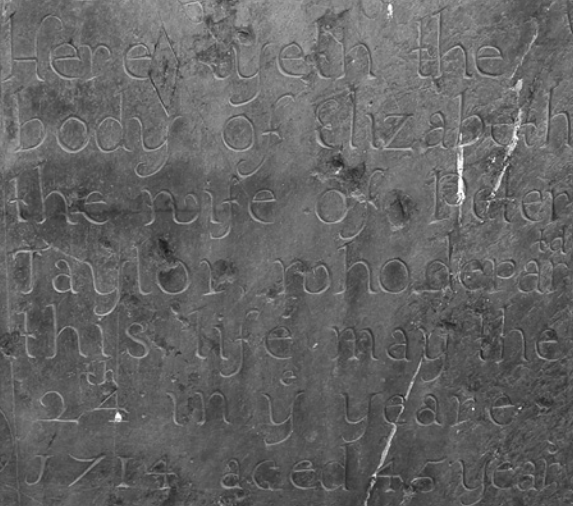 Here lyeth the
body of Elizabeth
the wife of Peter
Taylor, who depar^td
this life may the
24^th in y^e yeare
1714 aged 45 year